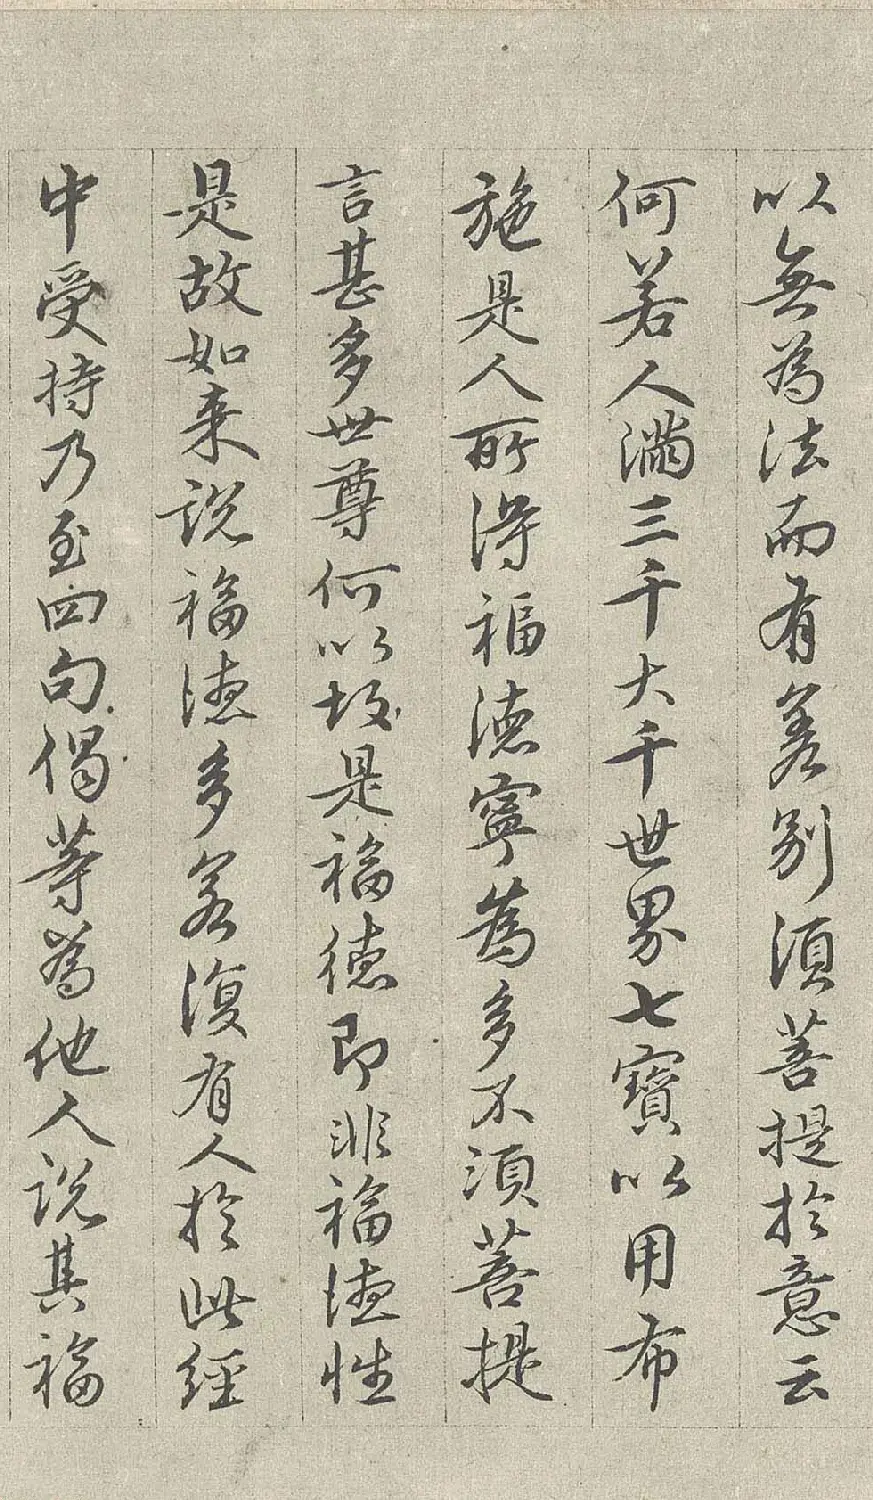 以無為法而有差別須菩提於意云
何若人滿三千大千世界七寶以用布
施是人所得福德寧為多不須菩提
言甚多世尊何以故是福德即非福德性
是故如来說福德多若復有人於此經
中受持乃至四句偈等為他人說其福